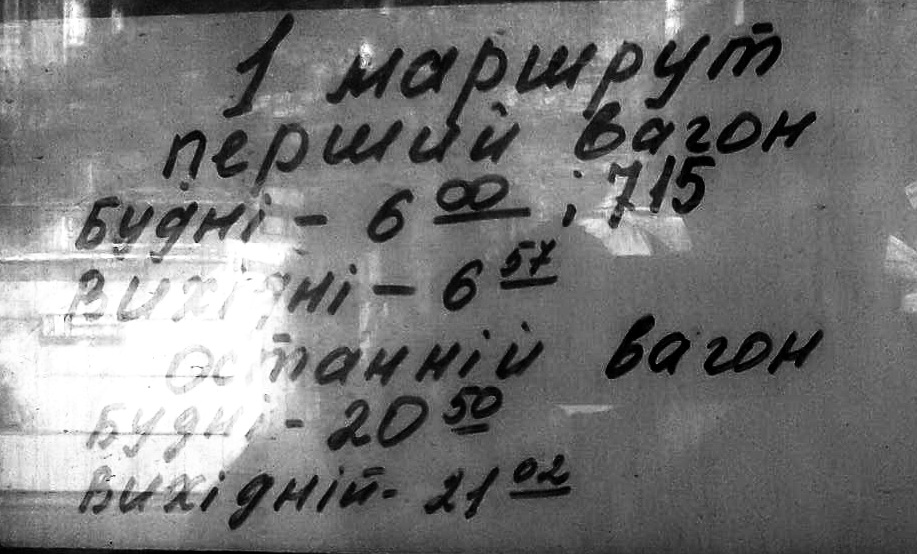 1 маршрут
перший вагон
Будні - 6 00 ; 715
Вихідні - 6 57
останній вагон
Будні - 20 50
Вихідній - 21 02